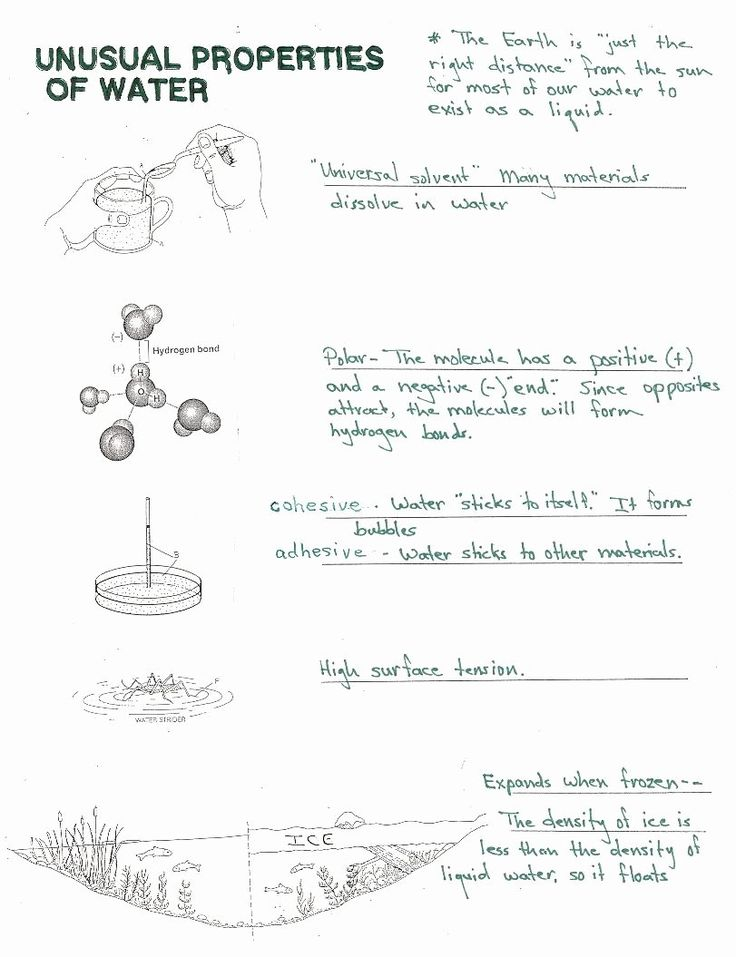 UNUSUAL PROPERTIES
OF WATER
* The Earth is "just the
right distance" from the sun
for most of our water to
exist as a liquid.
"Universal solvent" Many materials
dissolve in water
(-)
Hydrogen bond
(+)
H
O
H
Polar- The molecule has a positive (+)
and a negative (-) "end." Since opposites
attract, the molecules will form
hydrogen bonds.
cohesive - Water "sticks to itself." It forms
bubbles
adhesive - Water sticks to other materials.
B
High surface tension.
F
WATER STRIDER
Expands when frozen--
The density of ice is
less than the density of
liquid water, so it floats
ICE